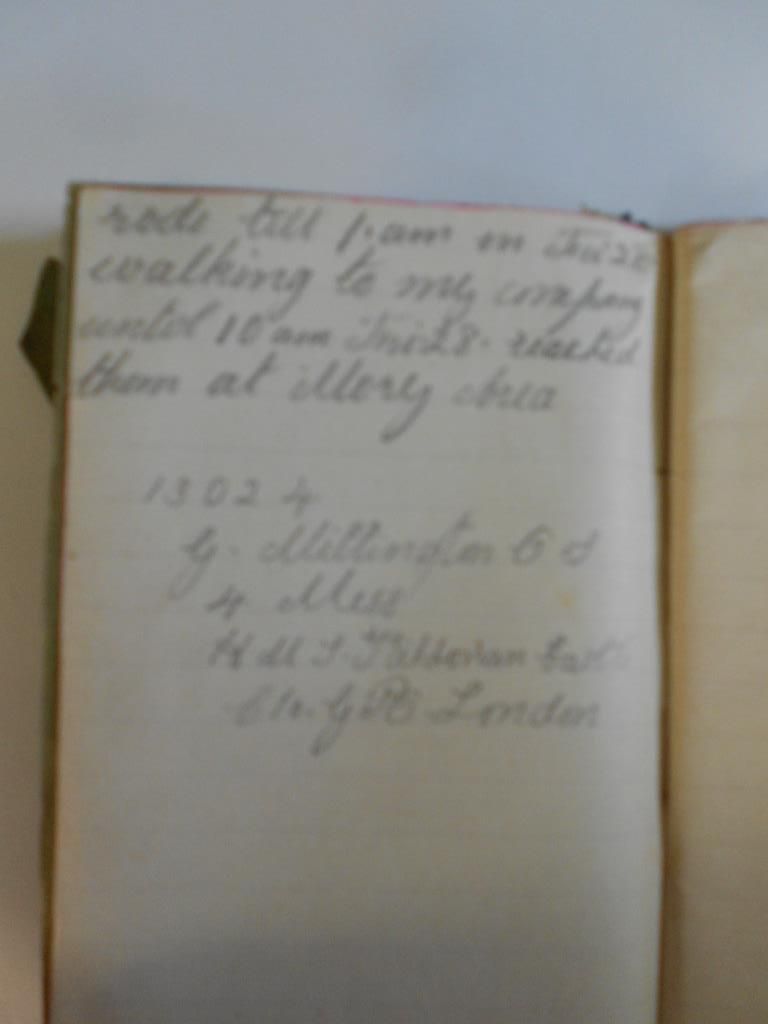 rode till 1. am on Fri 28
walking to my company
until 10 am Fri 28. reached
them at Mory Area
13024
G. Millington
4 Mess
H M S.
C/o. G P O London